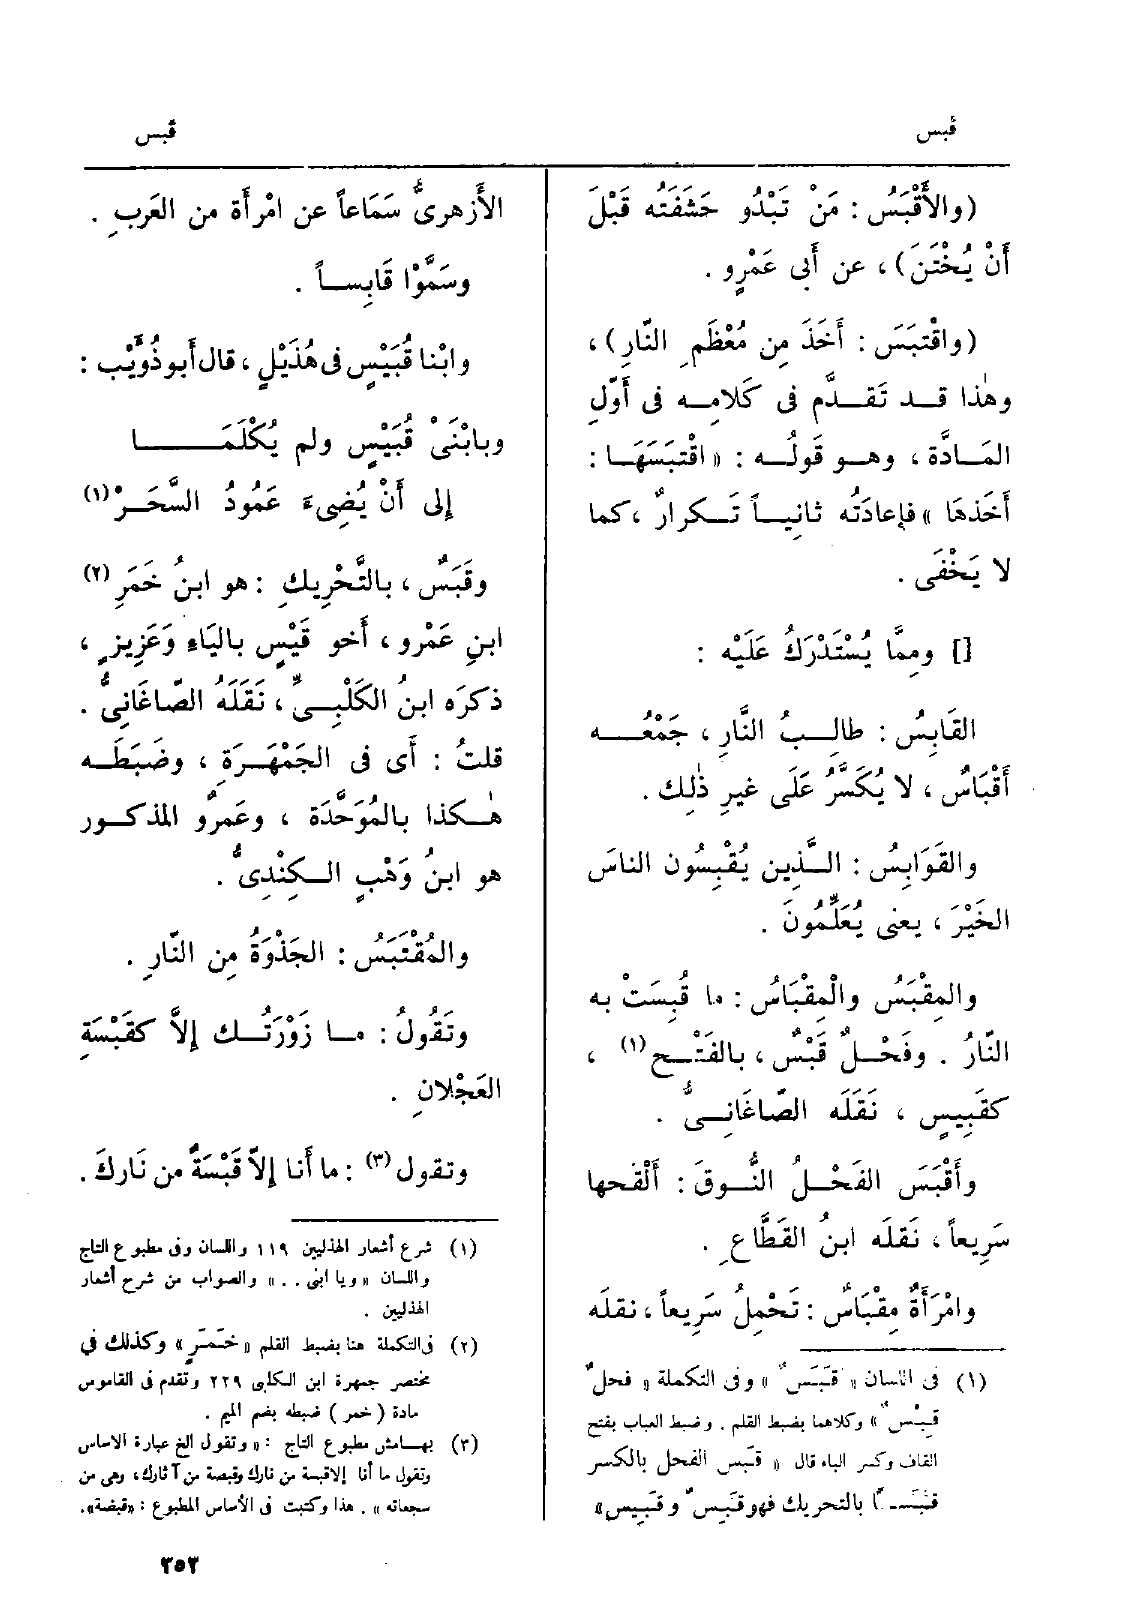 قبس
قبس
(والأَقْبَسُ : مَنْ تَبْدُو حَشَفَتُه قَبْلَ
أَنْ يُخْتَنَ) ، عن أَبى عَمْرٍو .
(واقْتبَسَ : أَخَذَ مِن مُعْظَمِ النّارِ) ،
وهٰذا قد تَقدَّم فى كَلامِه فى أَوّلِ
المَادَّة ، وهو قَولُه : « اقْتبَسَهَا :
أَخَذهَا » فإِعادَتُه ثانِياً تَكرارٌ ، كما
لا يَخْفَى .
[] ومِمَّا يُسْتَدْرَكُ عَلَيْه :
القَابِسُ : طالِبُ النَّارِ ، جَمْعُه
أَقْبَاسٌ ، لا يُكَسَّرُ عَلَى غيرِ ذٰلِك .
والقَوَابِسُ : الَّذِين يُقْبِسُون الناسَ
الخَيْرَ ، يعنى يُعَلِّمُونَ .
والمِقْبَسُ والْمِقْبَاسُ : ما قُبِسَتْ به
النّارُ . وفَحْلٌ قَبْسٌ ، بالفَتْحِ (١) ،
كقَبِيسٍ ، نَقَلَه الصّاغَانِىُّ .
وأَقْبَسَ الفَحْلُ النُّوقَ : أَلْقحها
سَرِيعاً ، نَقلَه ابنُ القَطَّاعِ .
وامْرَأَةٌ مِقْبَاسٌ : تَحْمِلُ سَرِيعاً ، نقلَه
(١) فى اللسان « قَبَسٌ » وفى التكملة « فحلٌ
قَبْسٌ » وكلاهما بضبط القلم . وضبط العباب بفتح
القاف وكسر الباء قال « قبَس الفحل بالكسر
قَبَسًا بالتحريك فهو قَبِسٌ وقَبِيس »
الأَزهرىُّ سَمَاعاً عن امْرأَة من العَربِ .
وسَمَّوْا قَابِساً .
وابْنا قُبَيْسٍ فى هُذَيْلٍ ، قال أَبو ذُؤَيْب :
وبابْنَىْ قُبَيْسٍ ولم يُكْلَمَا
إِلى أَنْ يُضِىءَ عَمُودُ السَّحَرْ (١)
وقَبَسٌ ، بالتَّحْرِيكِ : هو ابنُ خَمَرِ (٢)
ابنِ عَمْرو ، أَخو قَيْسٍ بالياءِ وَعَزِيزٍ ،
ذكرَه ابنُ الكَلْبِىِّ ، نَقَلَهُ الصّاغَانِىُّ .
قلتُ : أَى فى الجَمْهَرَةِ ، وضَبَطَه
هٰكذا بالمُوَحَّدَة ، وعَمرٌو المذكور
هو ابنُ وَهْبٍ الكِنْدِىُّ .
والمُقْتَبَسُ : الجَذْوَةُ مِن النّارِ .
وتَقُولُ : ما زَوْرَتُك إِلاَّ كقَبْسَةِ
العَجْلانِ .
وتقول (٣) : ما أَنا إِلاّ قَبْسَةٌ من نَارِكَ .
(١) شرح أشعار الهذليين ١١٩ واللسان وفى مطبوع التاج
واللسان « ويا ابنى . . » والصواب من شرح أشعار
الهذليين .
(٢) فى التكملة هنا بضبط القلم « خَمَرٍ » وكذلك فى
مختصر جمهرة ابن الكلبى ٢٢٩ وتقدم فى القاموس
مادة ( خمر ) ضبطه بضم الميم .
(٣) بهامش مطبوع التاج : « وتقول الخ عبارة الأساس
وتقول ما أنا إلا قبسة من نارك وقبصة من آثارك ، وهى من
سجعاته » . هذا وكتبت فى الأساس المطبوع : «قبضة».
٣٥٣